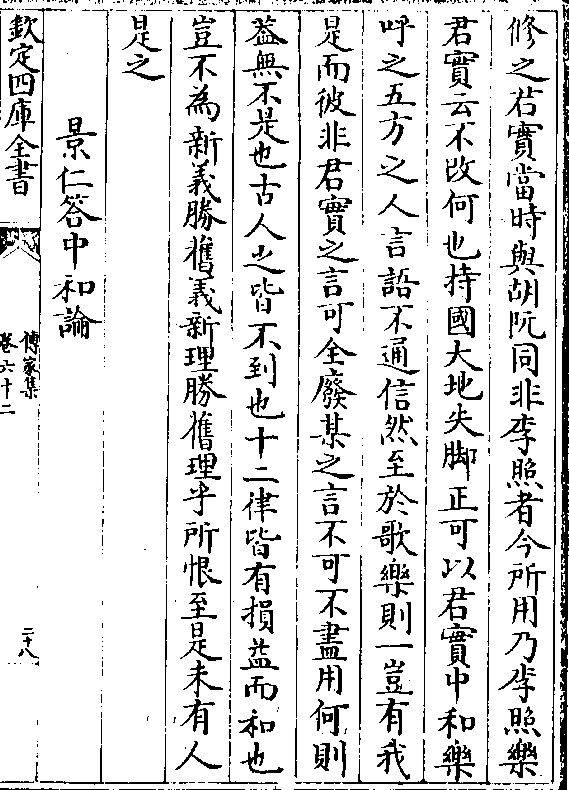 修之君實當時與胡阮同非李照者今所用乃李照樂
君實云不改何也持國大地失脚正可以君實中和樂
呼之五方之人言語不通信然至於歌樂則一豈有我
是而彼非君實之言可全廢某之言不可不盡用何則
葢無不是也古人之皆不到也十二律皆有損益而和也
豈不為新義勝舊義新理勝舊理乎所恨至是未有人
是之
景仁答中和論
欽定四庫全書
傳家集
卷六十二
二十八